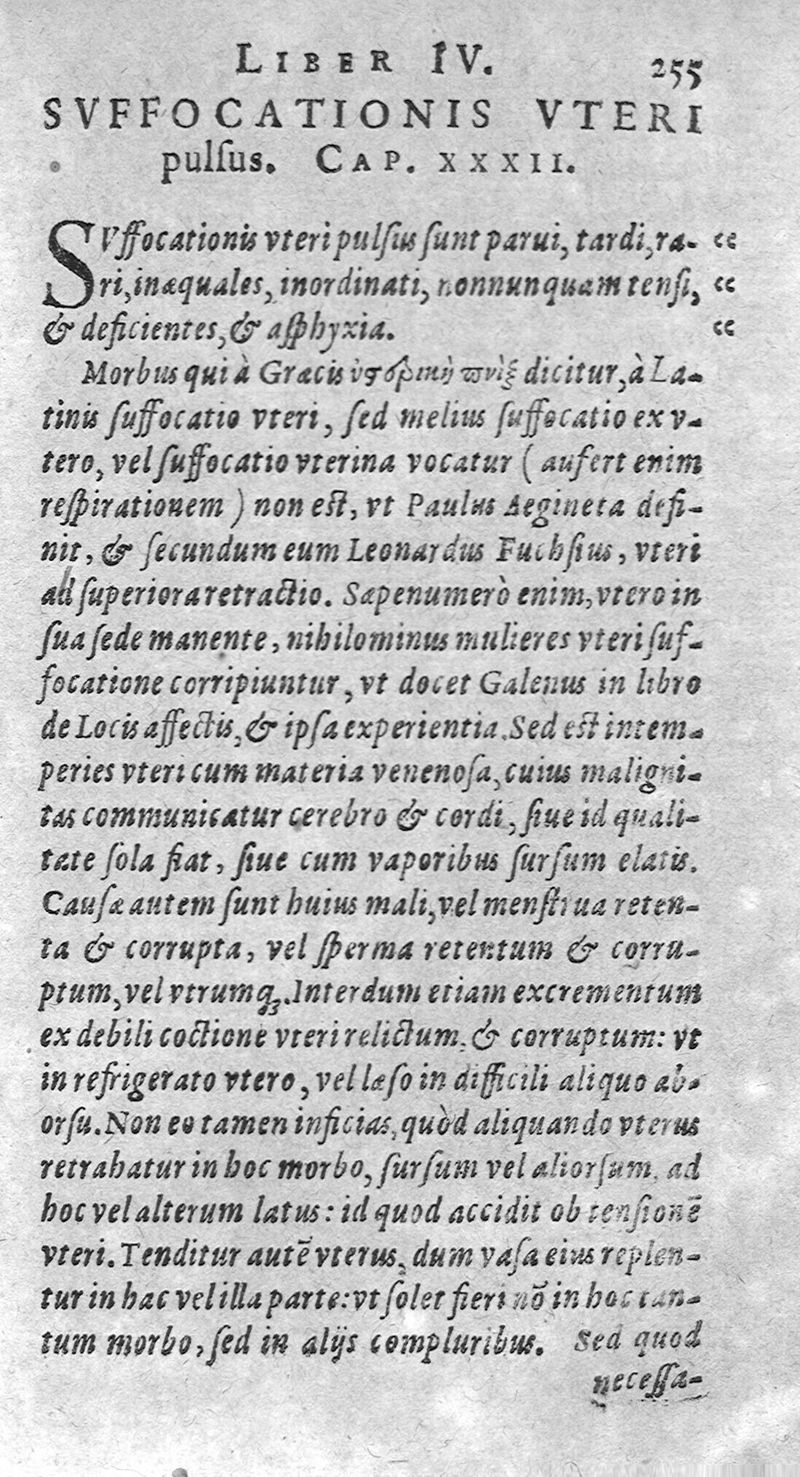 LIBER IV. 255
SVFFOCATIONIS VTERI
pulsus. CAP. XXXII.
SVffocationis vteri pulsus sunt parui, tardi, ra- “
ri, inæquales, inordinati, nonnunquam tensi, “
& deficientes, & asphyxia. “
Morbus qui à Græcis dicitur, à La-
tinis suffocatio vteri, sed melius suffocatio ex v-
tero, vel suffocatio vterina vocatur ( aufert enim
respirationem ) non est, vt Paulus Aegineta defi-
nit, & secundum eum Leonardus Fuchsius, vteri
ad superiora retractio. Sæpenumerò enim, vtero in
sua sede manente, nihilominus mulieres vteri suf-
focatione corripiuntur, vt docet Galenus in libro
de Locis affectis, & ipsa experientia. Sed est intem-
peries vteri cum materia venenosa, cuius maligni-
tas communicatur cerebro & cordi, siue id quali-
tate sola fiat, siue cum vaporibus sursum elatis.
Causæ autem sunt huius mali, vel menstrua reten-
ta & corrupta, vel sperma retentum & corru-
ptum, vel vtrumq;. Interdum etiam excrementum
ex debili coctione vteri relictum, & corruptum: vt
in refrigerato vtero, vel læso in difficili aliquo ab-
orsu. Non eo tamen inficias, quòd aliquando vterus
retrahatur in hoc morbo, sursum vel aliorsum, ad
hoc vel alterum latus: id quod accidit ob tensionē
vteri. Tenditur autē vterus, dum vasa eius replen-
tur in hac vel illa parte: vt solet fieri nō in hoc tan-
tum morbo, sed in alijs compluribus. Sed quod
necessa-